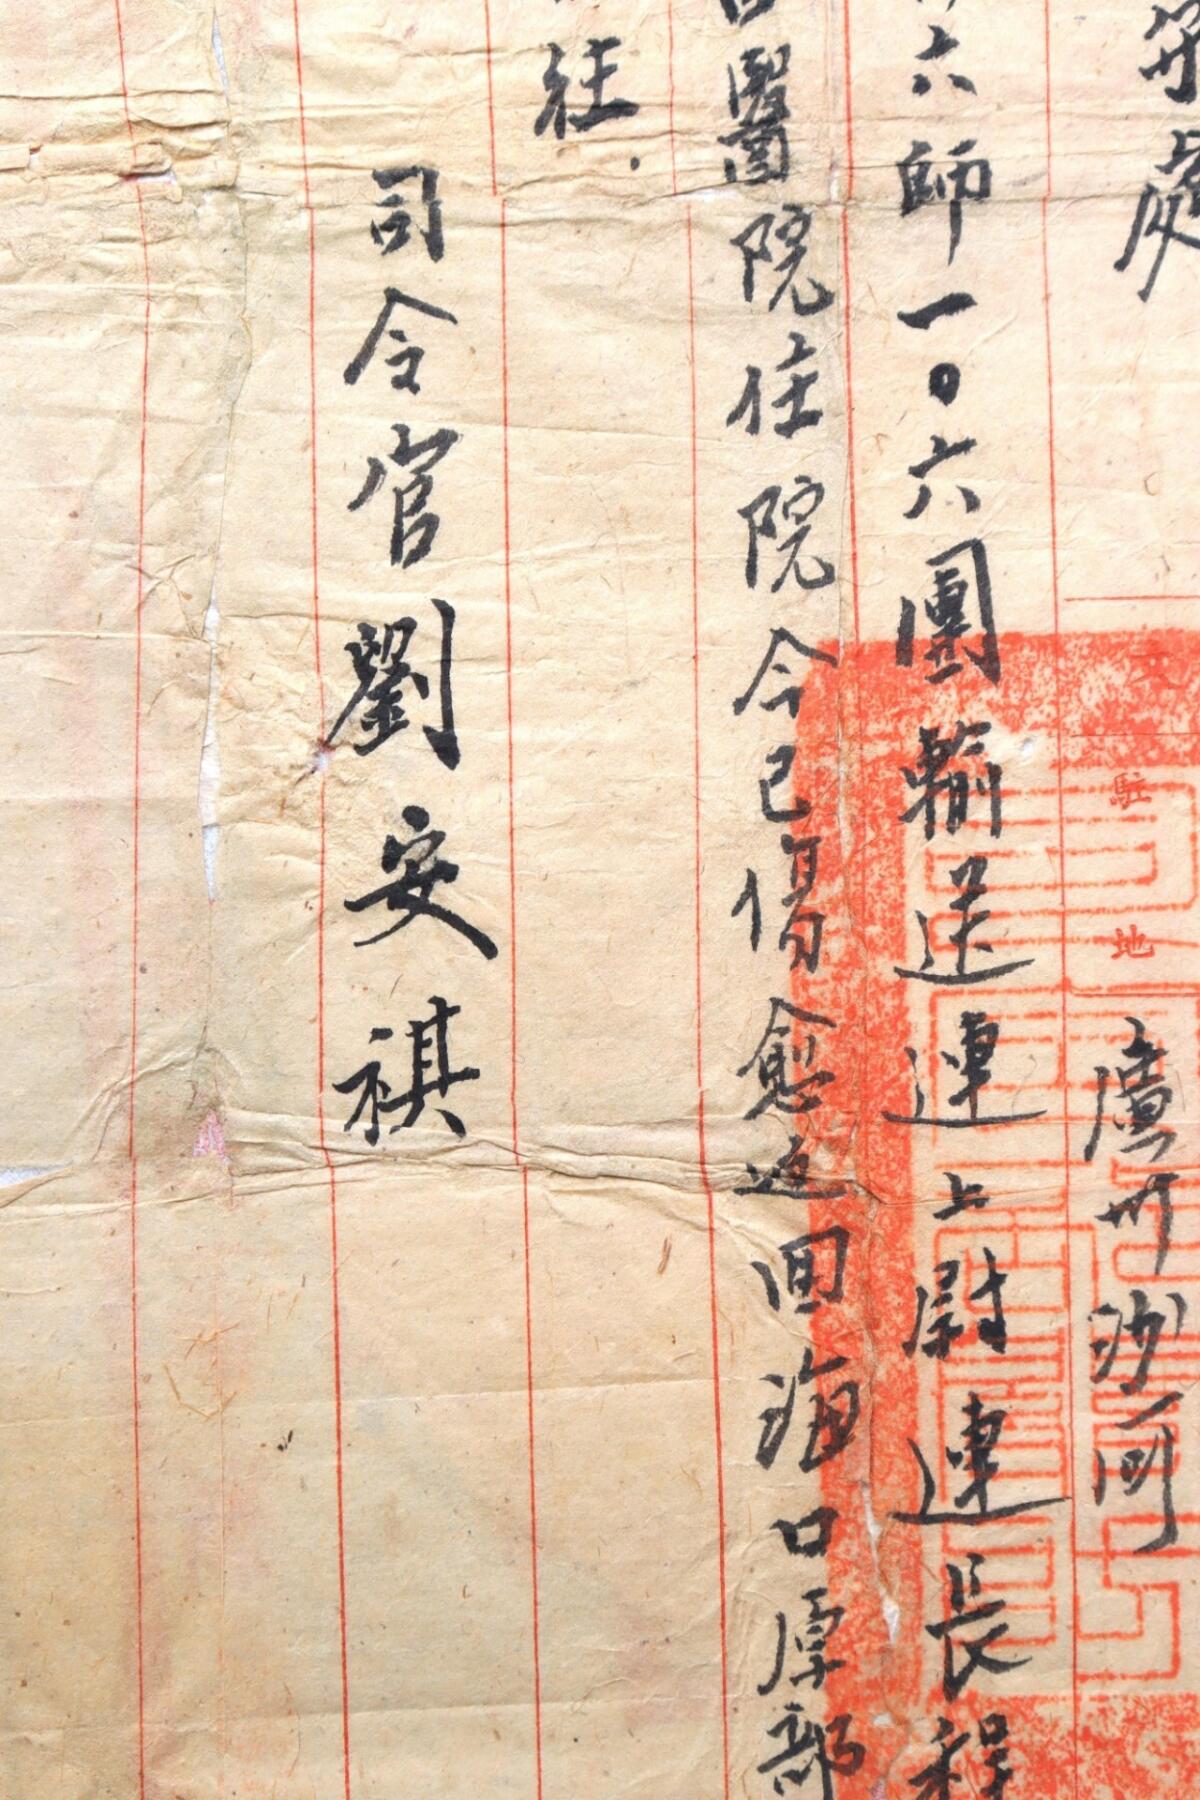 處
駐地 廣州沙河
六師一〇六團輸送連上尉連長程
醫院住院今已傷愈返回海口原部
往.
司令官劉安祺